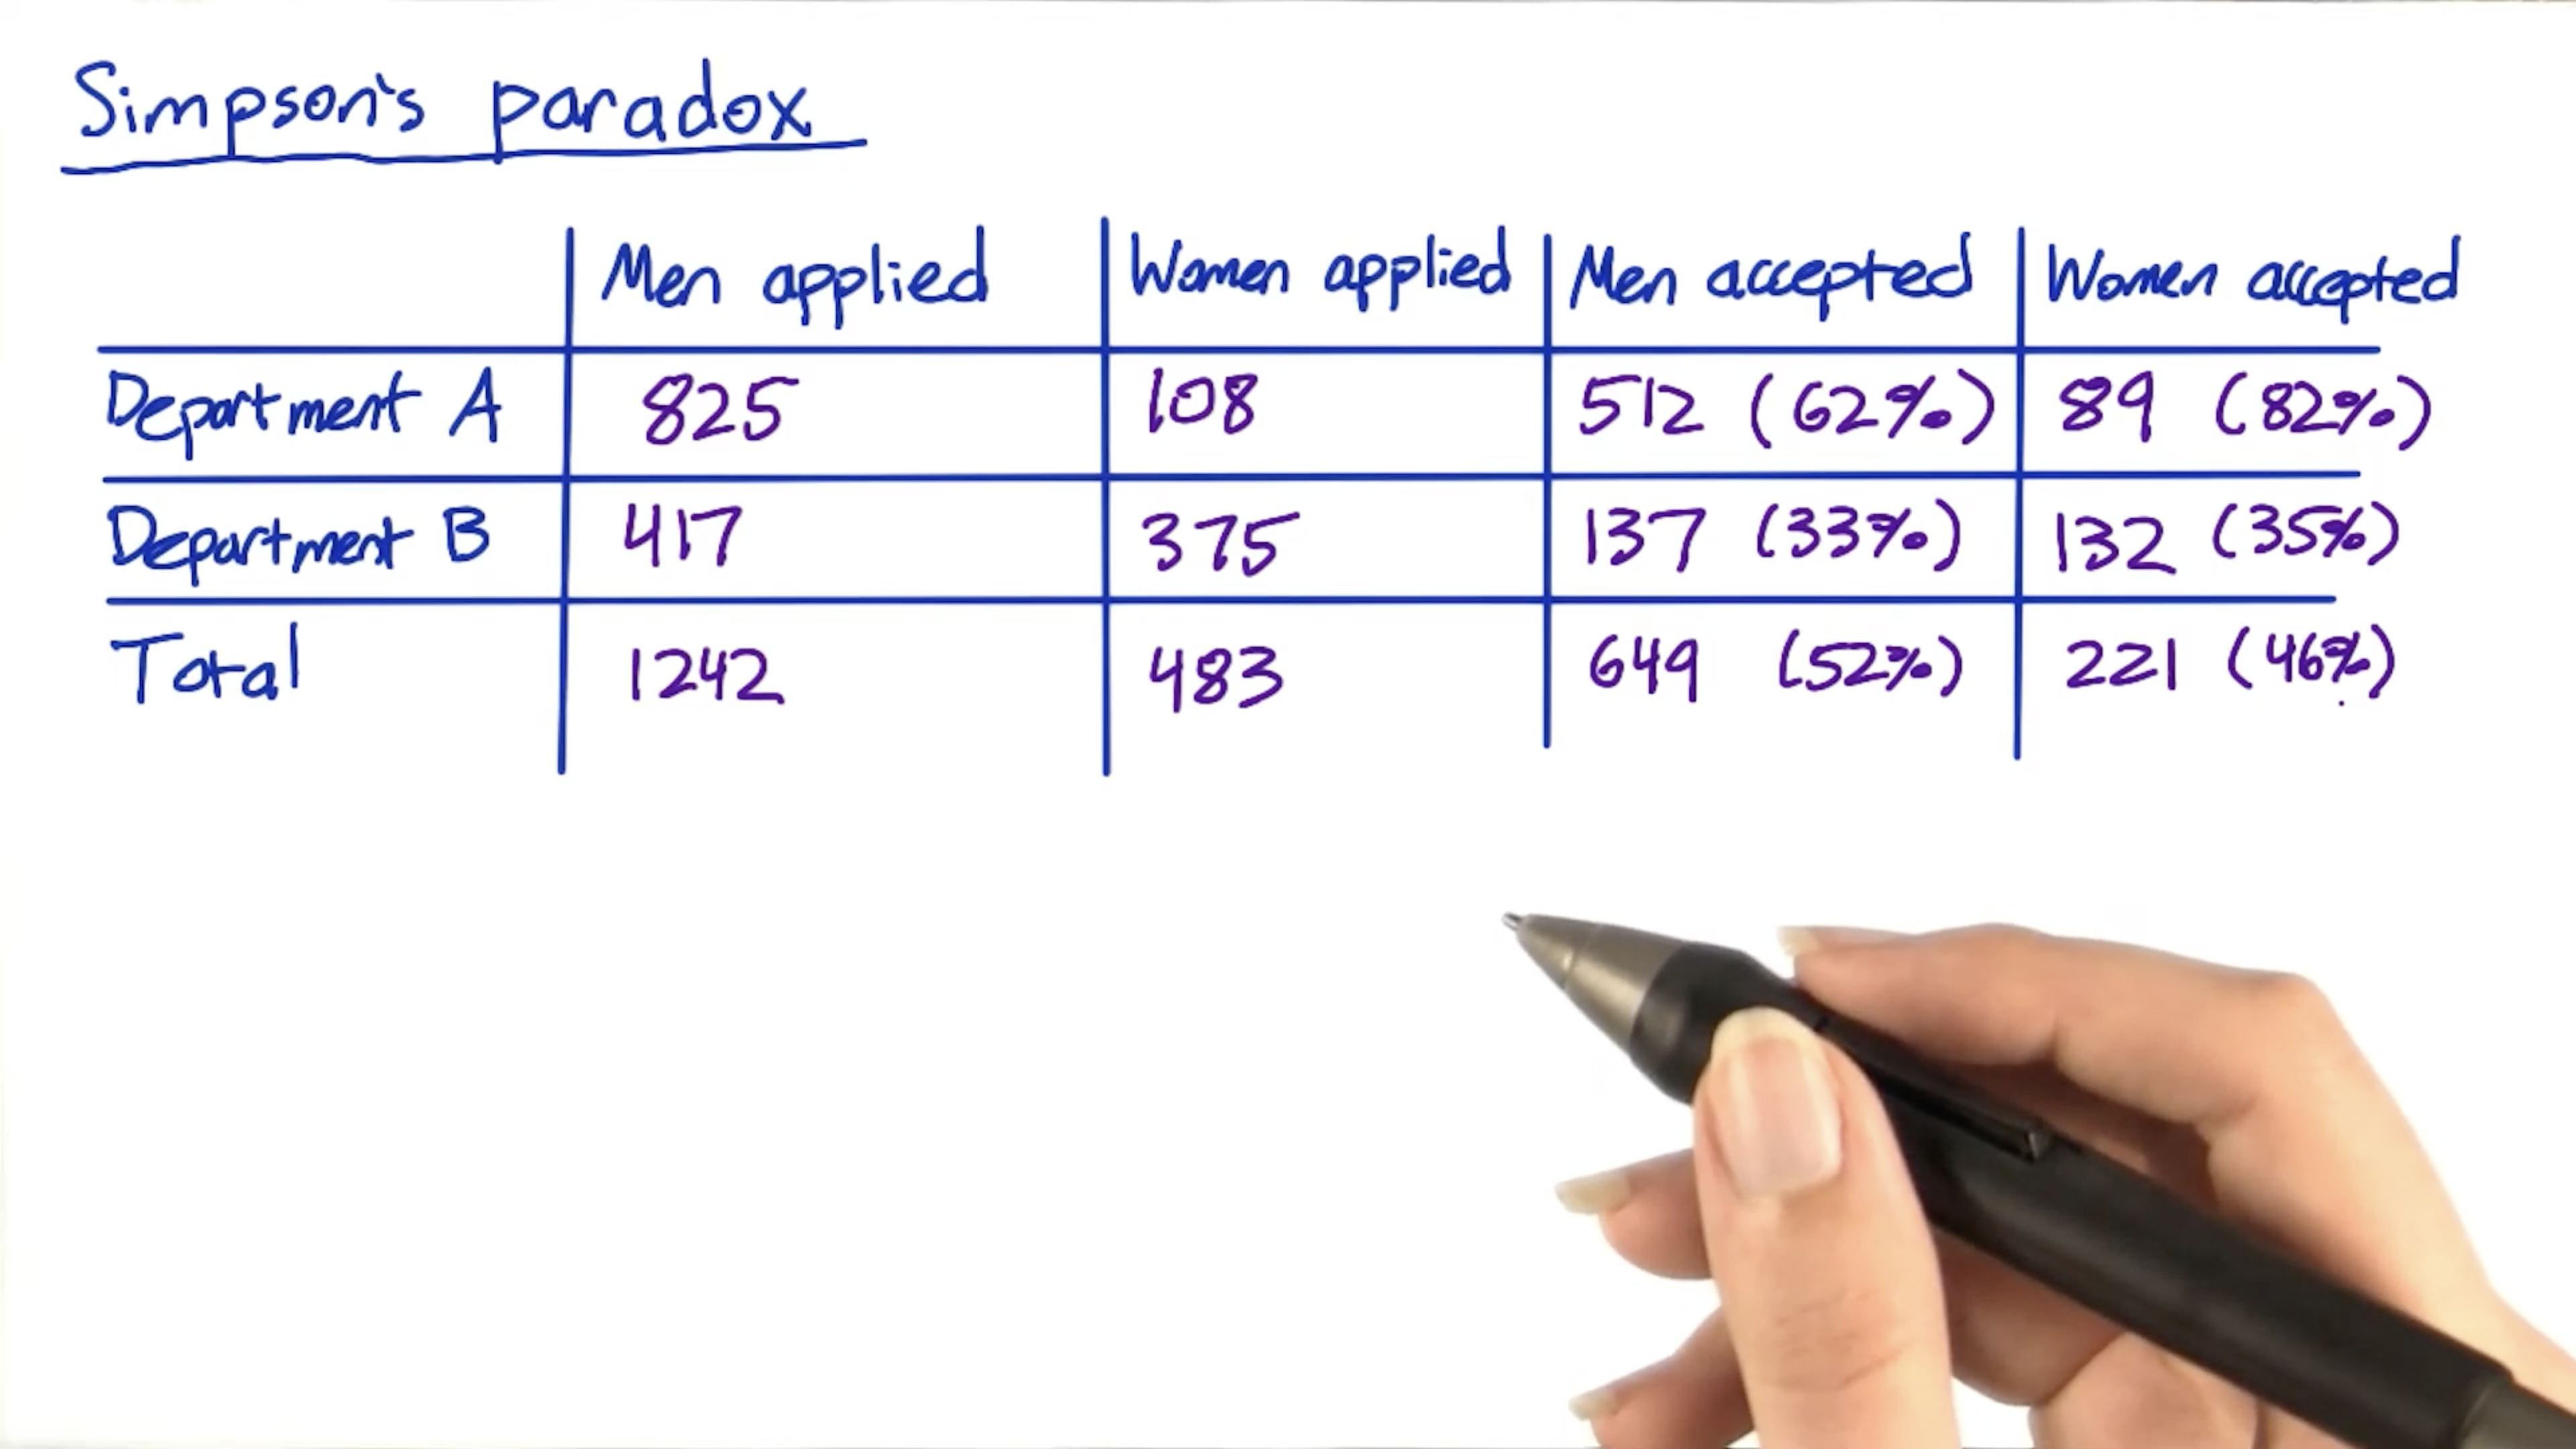 Simpson's paradox
Men applied Women applied Men accepted Women accepted
Department A 825 108 512 (62%) 89 (82%)
Department B 417 375 137 (33%) 132 (35%)
Total 1242 483 649 (52%) 221 (46%)